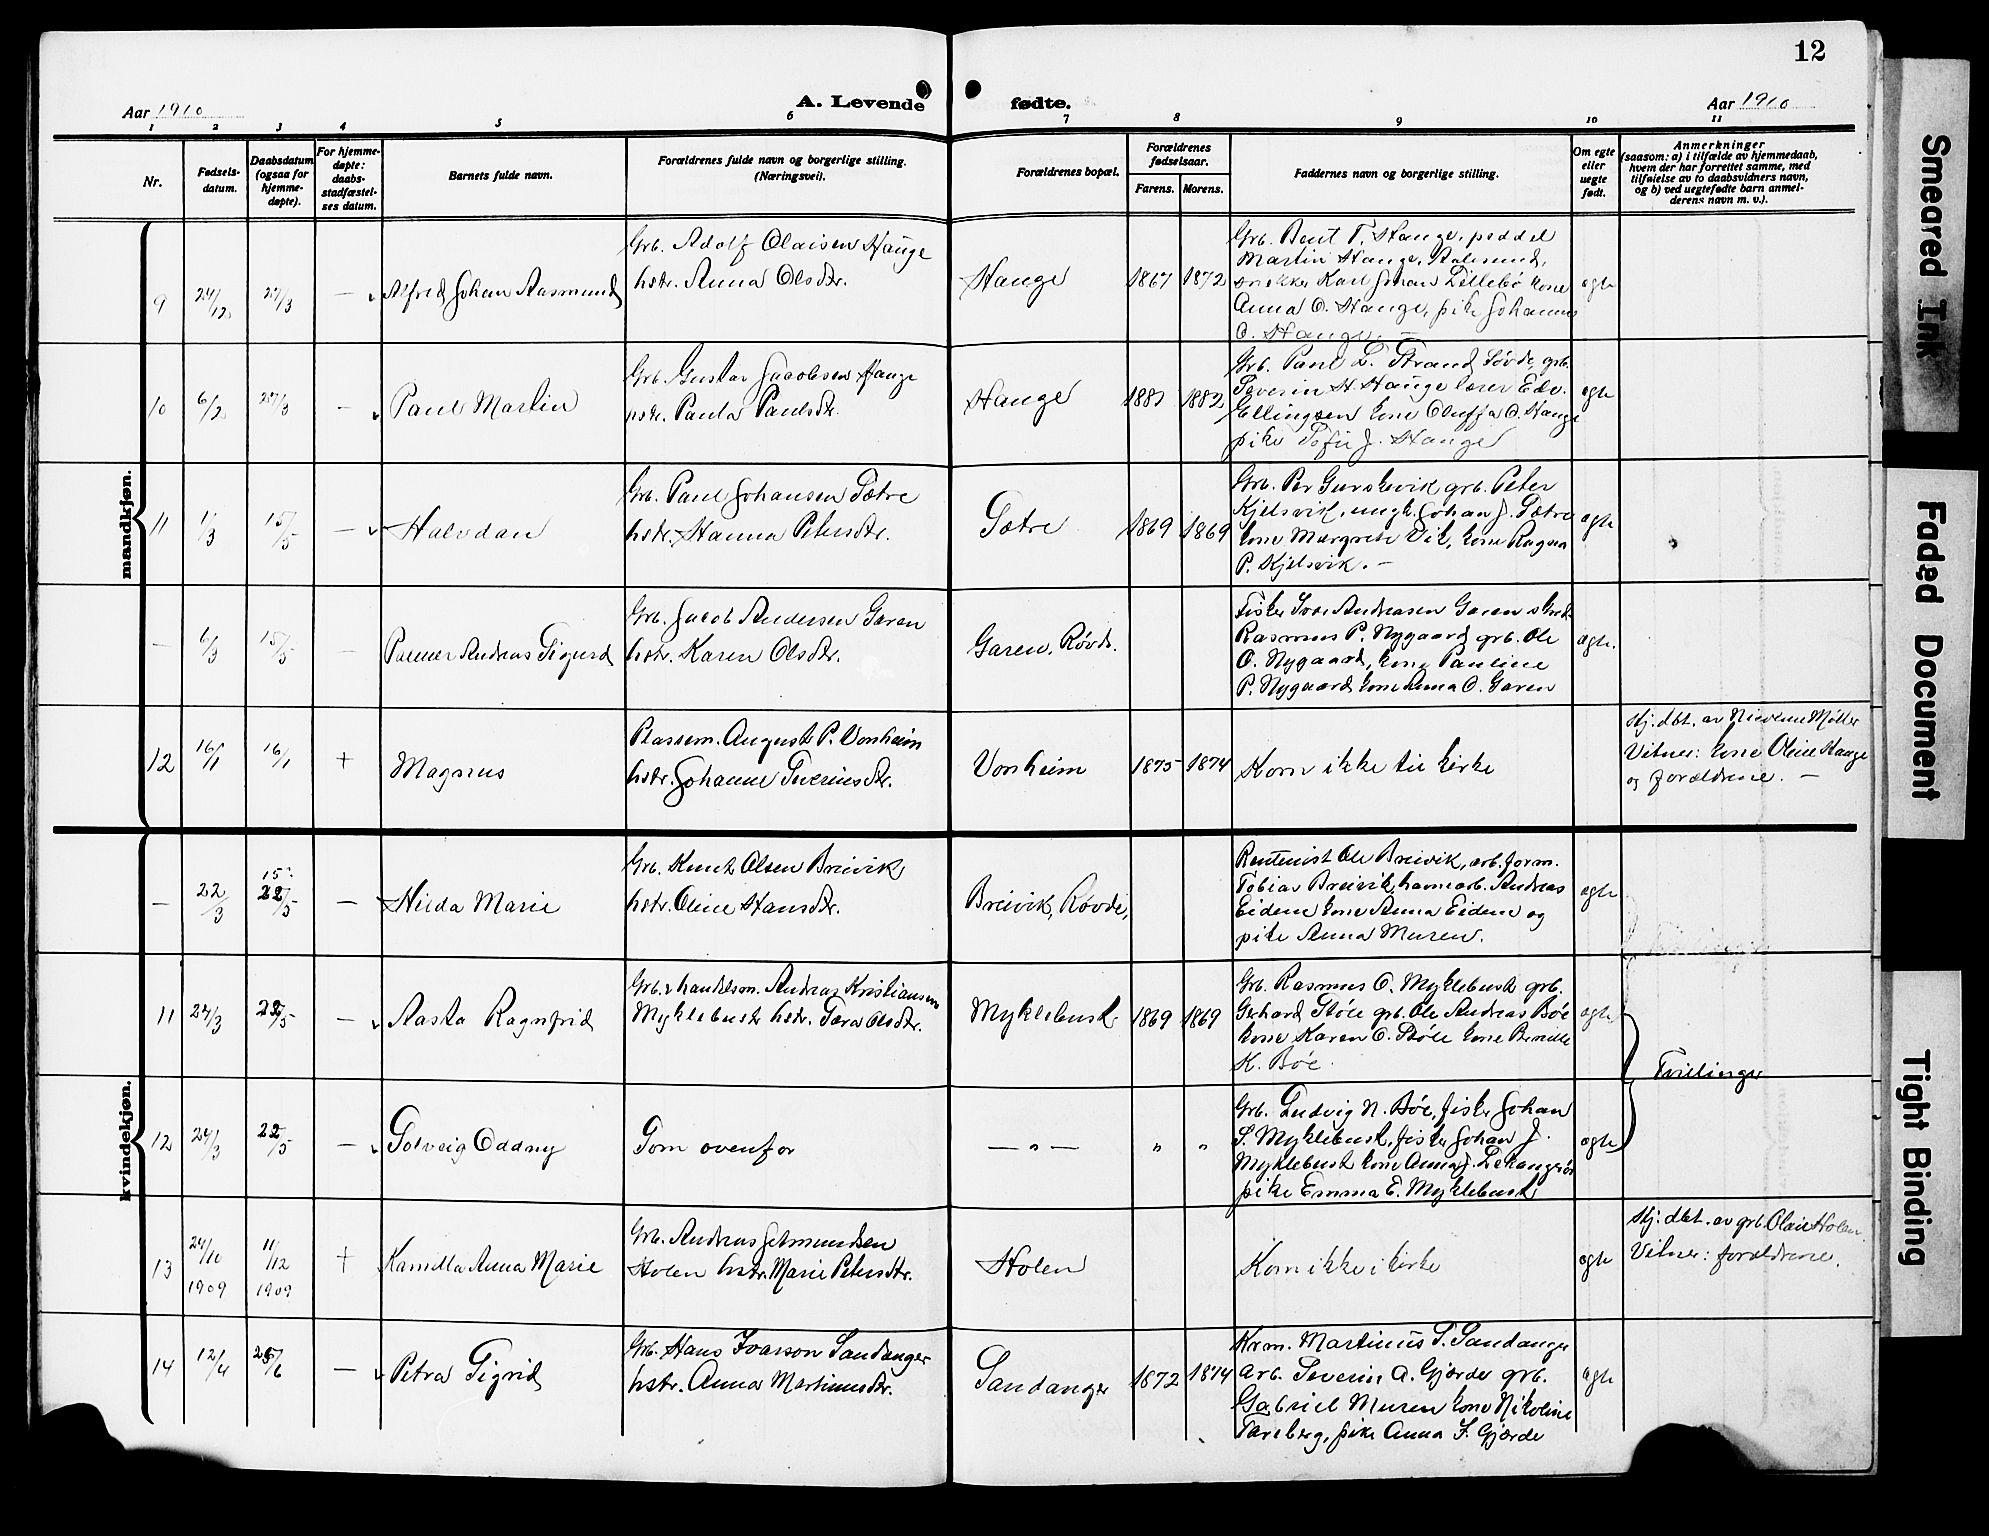 12
Aar 1910
A. Levende fødte.
Aar 1910
1 2 3 4 5 6 7 8 9 10 11
Nr.
Fødsels-
datum.
Daabsdatum
(ogsaa for
hjemme-
døpte).
For hjemme-
døpte:
daabs-
stadfæstel-
ses datum.
Barnets fulde navn.
Forældrenes fulde navn og borgerlige stilling.
(Næringsvei).
Forældrenes bopæl.
Forældrenes
fødselsaar.
Farens. Morens.
Faddernes navn og borgerlige stilling.
Om egte
eller
uegte
født.
Anmerkninger
(saasom: a) i tilfælde av hjemmedaab,
hvem der har forrettet samme, med
tilføielse av to daabsvidners navn,
og b) ved uegtefødte barn anmel-
derens navn m. v.).
mandkjøn.
9 24/12 27/3 — Alfred Johan Aasmund
Grb. Adolf Olaisen Hauge
hstr. Anna Olsdtr.
Hauge 1867 1872
Grb. Bent T. Hauge, peddel
Martin Hauge, Aalesund,
snekker Karl Johan Lillebø kone
Anna O. Hauge, pike Johanne
O. Hauge. —
egte
10 6/2 27/3 — Paul Martin
Grb. Gustav Jacobsen Hauge
hstr. Paula Paulsdtr.
Hauge 1881 1882
Grb. Paul L. Strand, Søvde, grb.
Severin H. Hauge lærer Edv.
Ellingsen kone Oluffa O. Hauge
pike Sofie J. Hauge
egte
11 1/3 15/5 — Halvdan
Grb. Paul Johansen Sætre
hstr. Hanna Petersdtr.
Sætre 1869 1869
Grb. Per Gurskevik grb. Peter
Kjelsvik, ungk. Johan J. Sætre
kone Margrete Vik, kone Ragna
P. Kjelsvik. —
egte
— 6/3 15/5 — Palmer Andreas Sigurd
Grb. Jacob Andersen Garen
hstr. Karen Olsdtr.
Garen, Røvde.
Fisker Ivar Andreasen Garen
Rasmus P. Nygaard grb. Ole
O. Nygaard, kone Pauline
P. Nygaard kone Anna O. Garen
egte.
12 16/1 16/1 + Magnus
Plassem. August P. Vonheim
hstr. Johanne Severinsdtr.
Vonheim 1875 1874
Kom ikke til kirke
Hj. dbt. av Nicoline Møller
Vitner: kone Oline Hauge
og forældrene. —
kvindekjøn.
— 22/3 15 22/5 — Hilda Marie
Grb. Knut Olsen Breivik
hstr. Oline Hansdtr.
Breivik, Røvde,
Rentenist Ole Breivik, arb. form.
Tobias Breivik, havnearb. Andreas
Eidem kone Anna Eidem og
pike Anna Muren.
egte
11 24/3 22/5 — Aasta Ragnfrid
Grb. & handelsm. Andreas Kristiansen
Myklebust hstr. Sara Olsdtr.
Myklebust 1869 1869
Grb. Rasmus O. Myklebust grb.
Gerhard Støle grb. Ole Andreas Bøe
kone Karen O. Støle kone Pernille
K. Bøe.
egte
Tvillinger
12 24/3 22/5 — Solveig Oddny
Som ovenfor
— " — " "
Grb. Ludvig N. Bøe, fisker Johan
S. Myklebust, fisker Johan J.
Myklebust kone Anna J.
pike Emma E. Myklebust
egte
13 24/10 1909 11/12 1909 + Kamilla Anna Marie
Grb. Andreas Jetmundsen
Holen hstr. Marie Petersdtr.
Holen
Kom ikke i kirke
egte
Hj. dbt. av grb. Olaie Holen.
Vitner: forældrene.
14 12/4 25/6 — Petra Sigrid
Grb. Hans Ivarson Sandanger
hstr. Anna Martinusdtr.
Sandanger 1872 1874
Krm. Martinus S. Sandanger
arb. Severin A. Gjærde grb.
Gabriel Muren kone Nikoline
Tarberg, pike Anna S. Gjærde
egte
Smeared Ink
Faded Document
Tight Binding